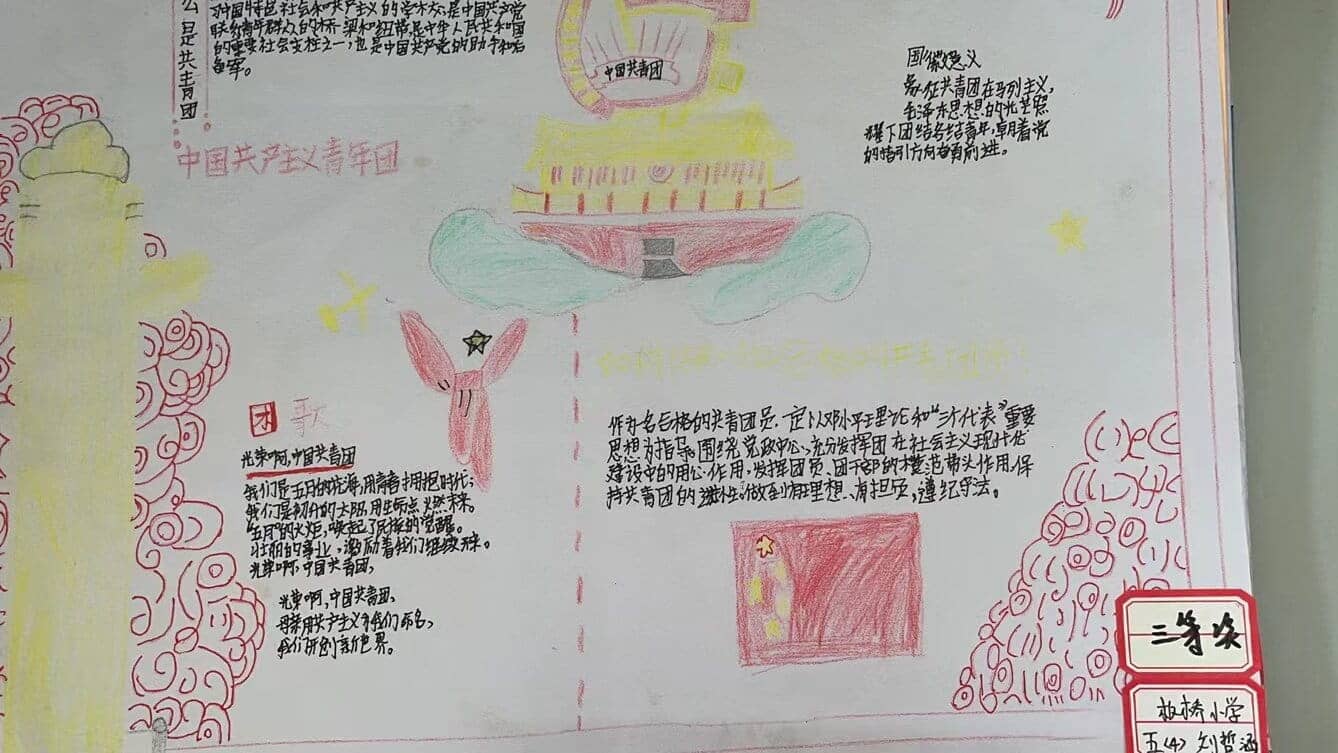 么是共青团
习中国特色社会和共产主义的学术大,是中国共产党
联系青年群众的桥梁和纽带,是中华人民共和国
的重要社会支柱之一,也是中国共产党的助手和后
备军。
中国共青团
中国共产主义青年团
团徽意义
象征共青团在马列主义,
毛泽东思想的光芒照
耀下团结各
青年,朝着党
的指引方向奋勇前进。
团歌
光荣啊,中国共青团
我们是五月的花海,用青春拥抱时代;
我们是初升的太阳,用生命点燃未来。
"五月"的火炬,唤起了民族的觉醒。
壮丽的事业,激励着我们继续未来。
光荣啊,中国共青团,
光荣啊,中国共青团,
母亲用共产主义为我们命名,
我们开创新世界。
作为一名合格的共青团员,一定以邓小平理论和"三个代表"重要
思想为指导,围绕党政中心,充分发挥团在社会主义现代化
建设中的
作用,发挥团员、团干部的模范带头作用,保
持共青团的
性,做到有理想、有担
,遵纪守法。
三等奖
板桥小学
五(4) 刘哲涵